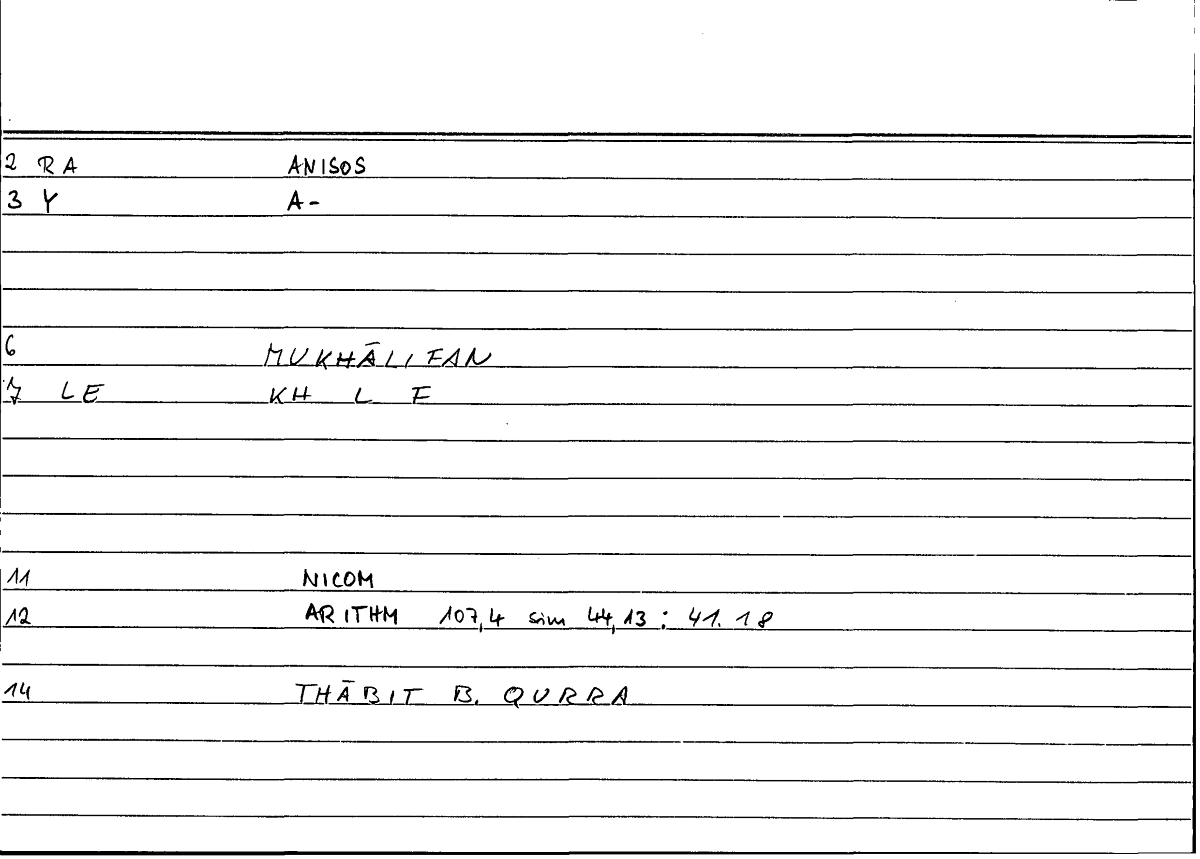 2 RA ANISOS
3 Y A-
6 MUKHĀLIFAN
7 LE KH L F
11 NICOM
12 ARITHM 107,4 sim 44,13 : 41.18
14 THĀBIT B. QURRA